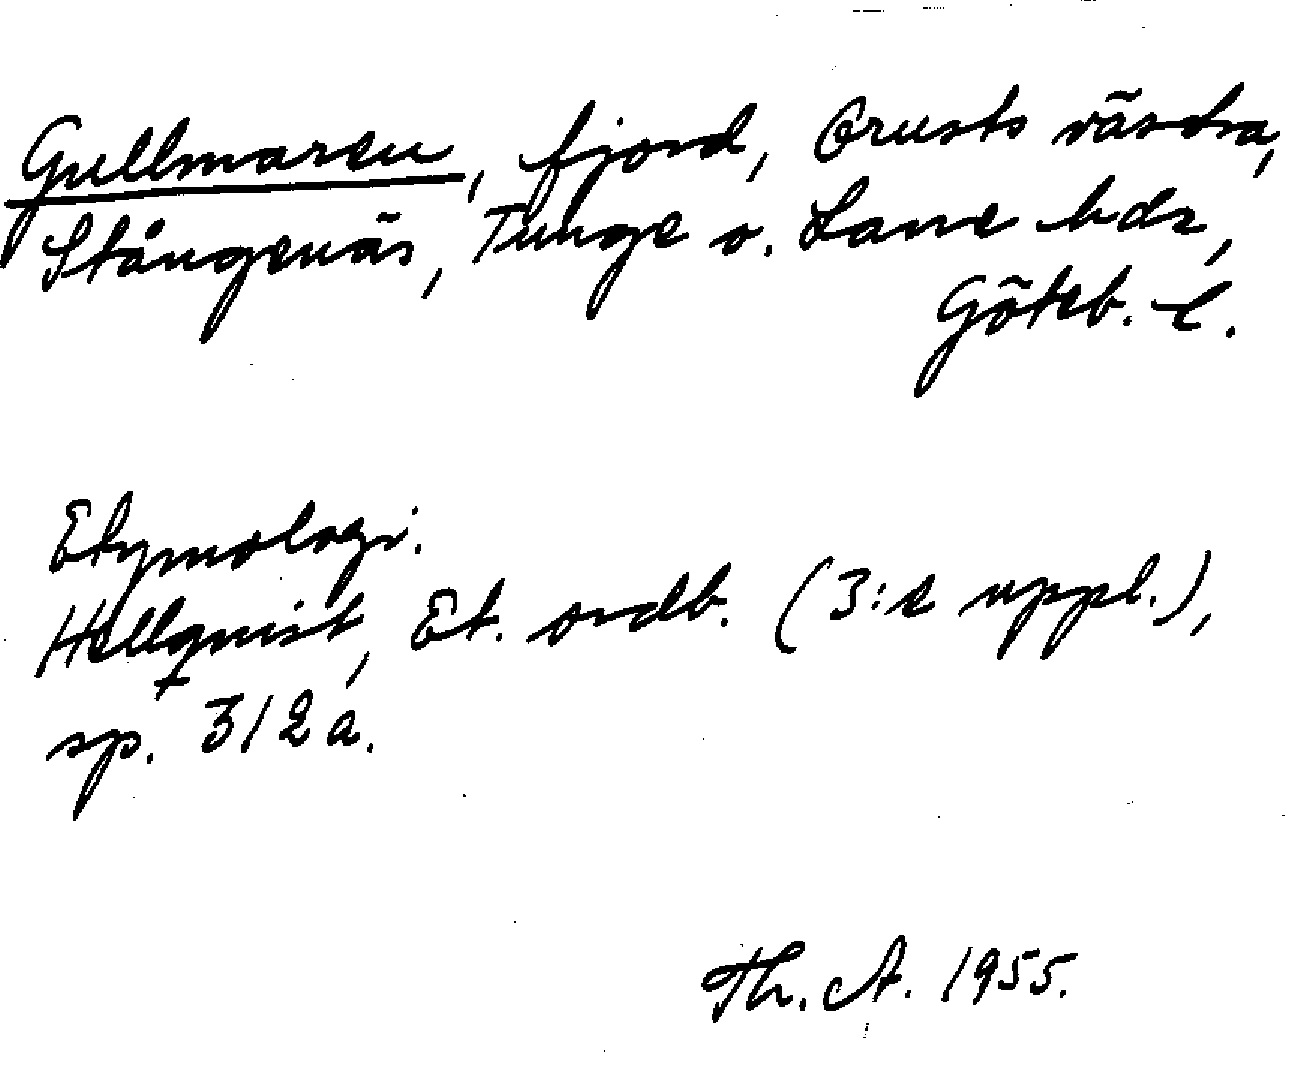 Gullmaren, fjord, Orusts västra,
Stångenäs, Tunge o. Lane hdr,
Göteb. l.
Etymologi.
Hellquist, Et. ordb. (3:e uppl.),
sp. 312a.
Th. A. 1955.